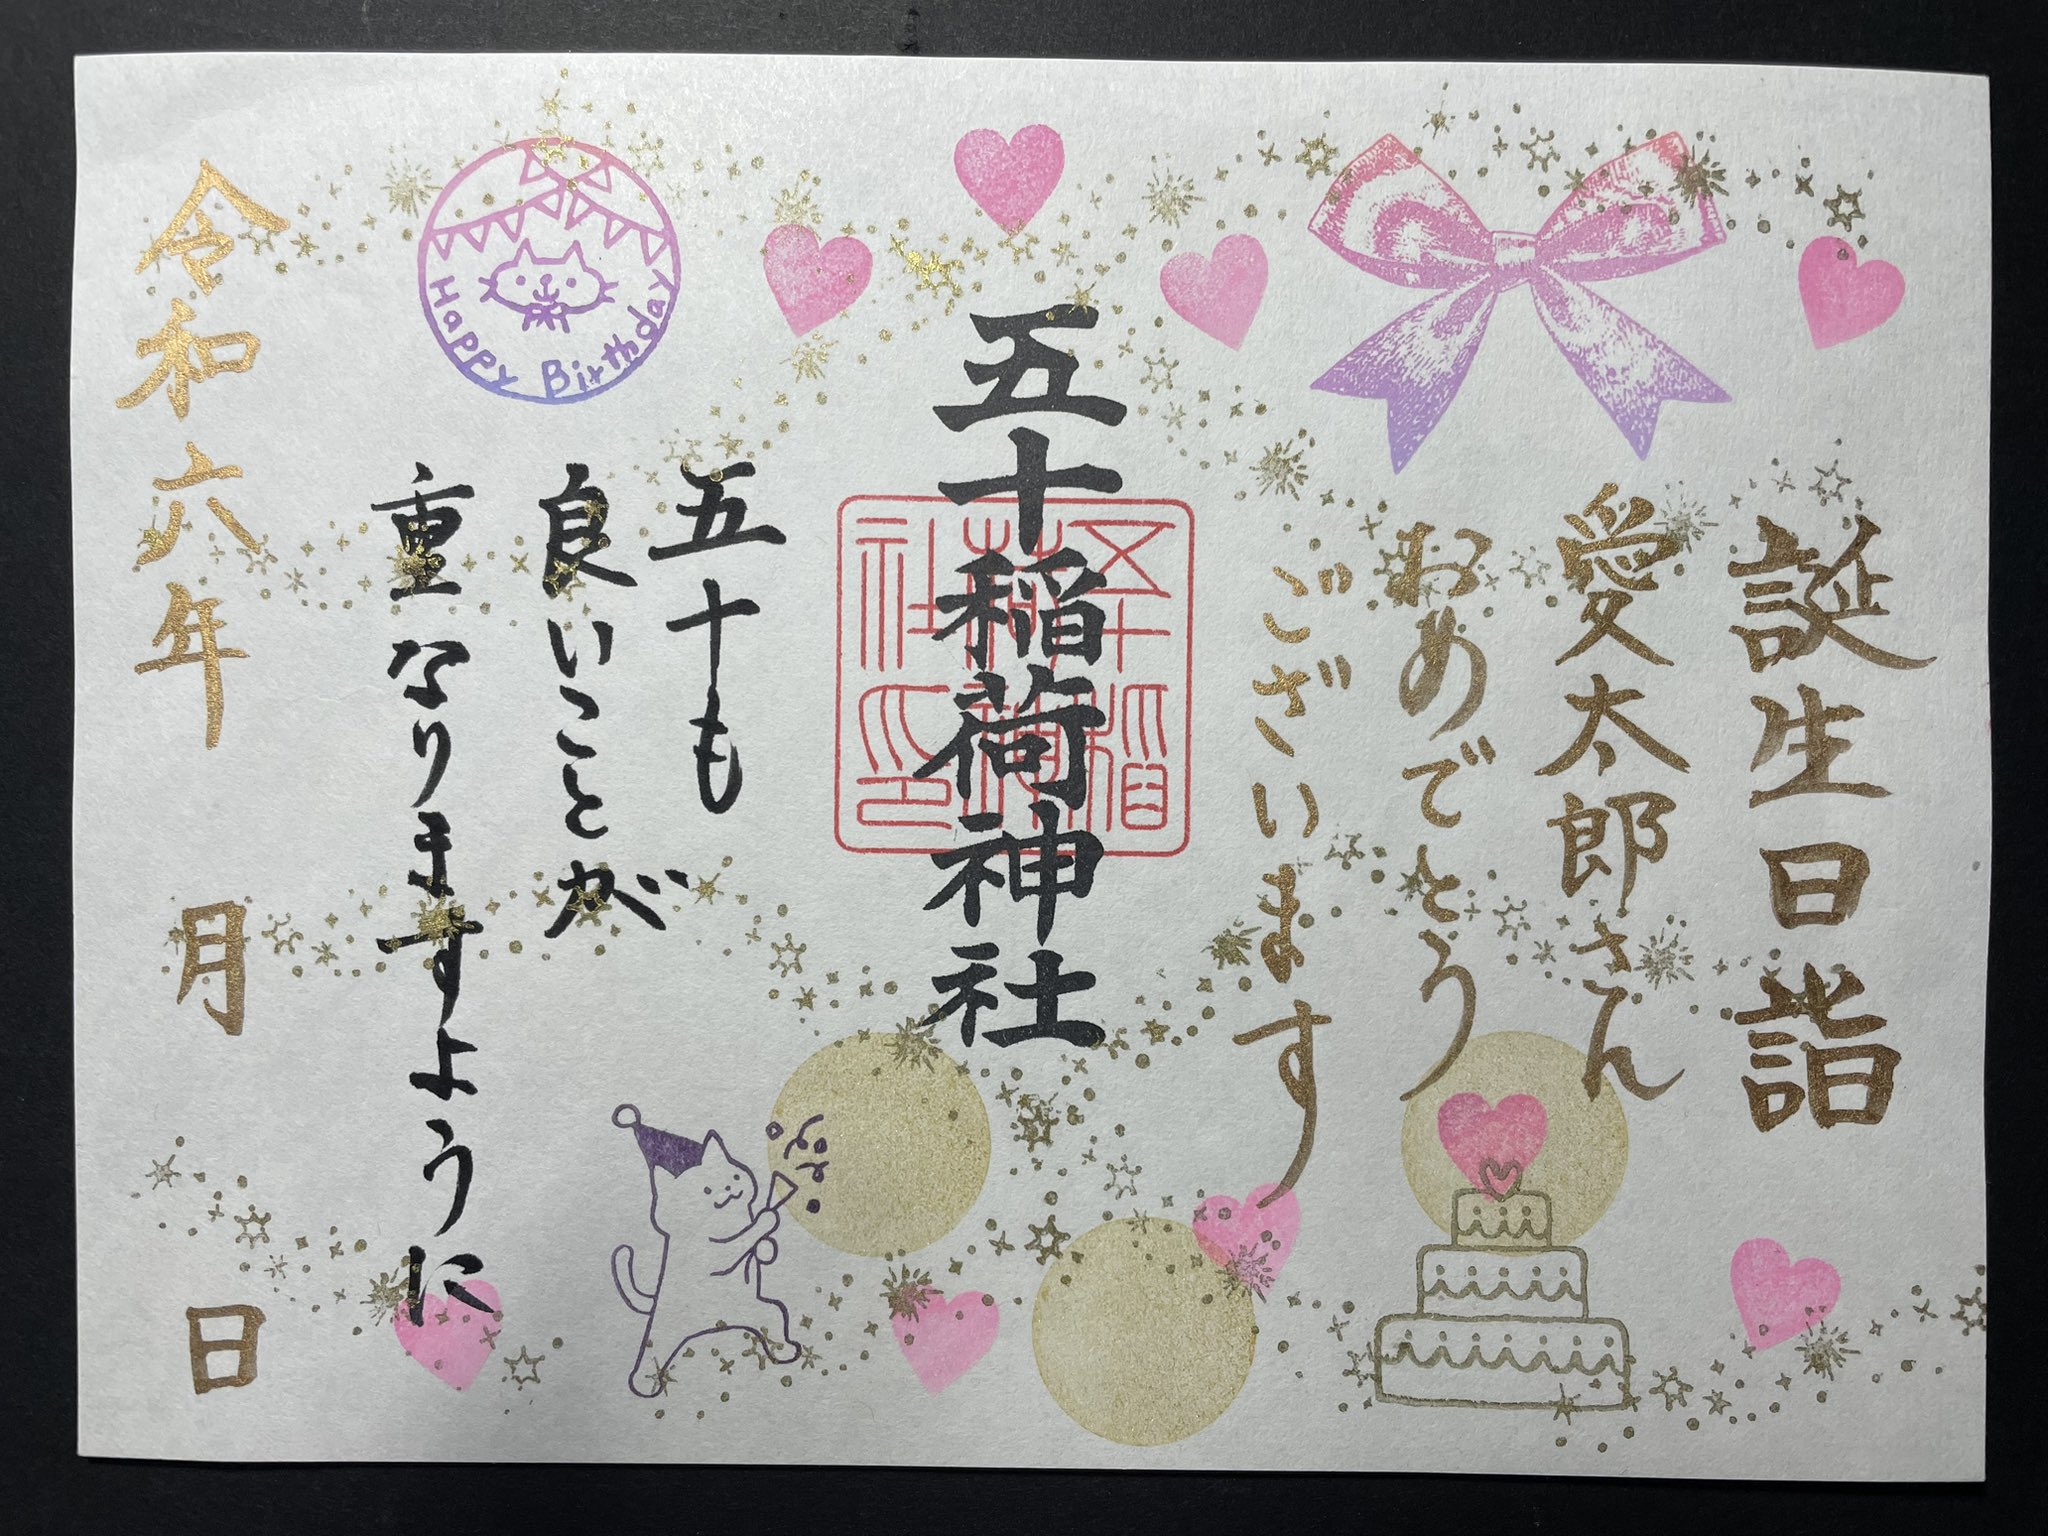 誕生日詣
愛太郎さん
おめでとう
ございます
五十稲荷神社
五十稲荷神社印
五十も
良いことが
重なりますように
Happy Birthday
令和六年 月 日